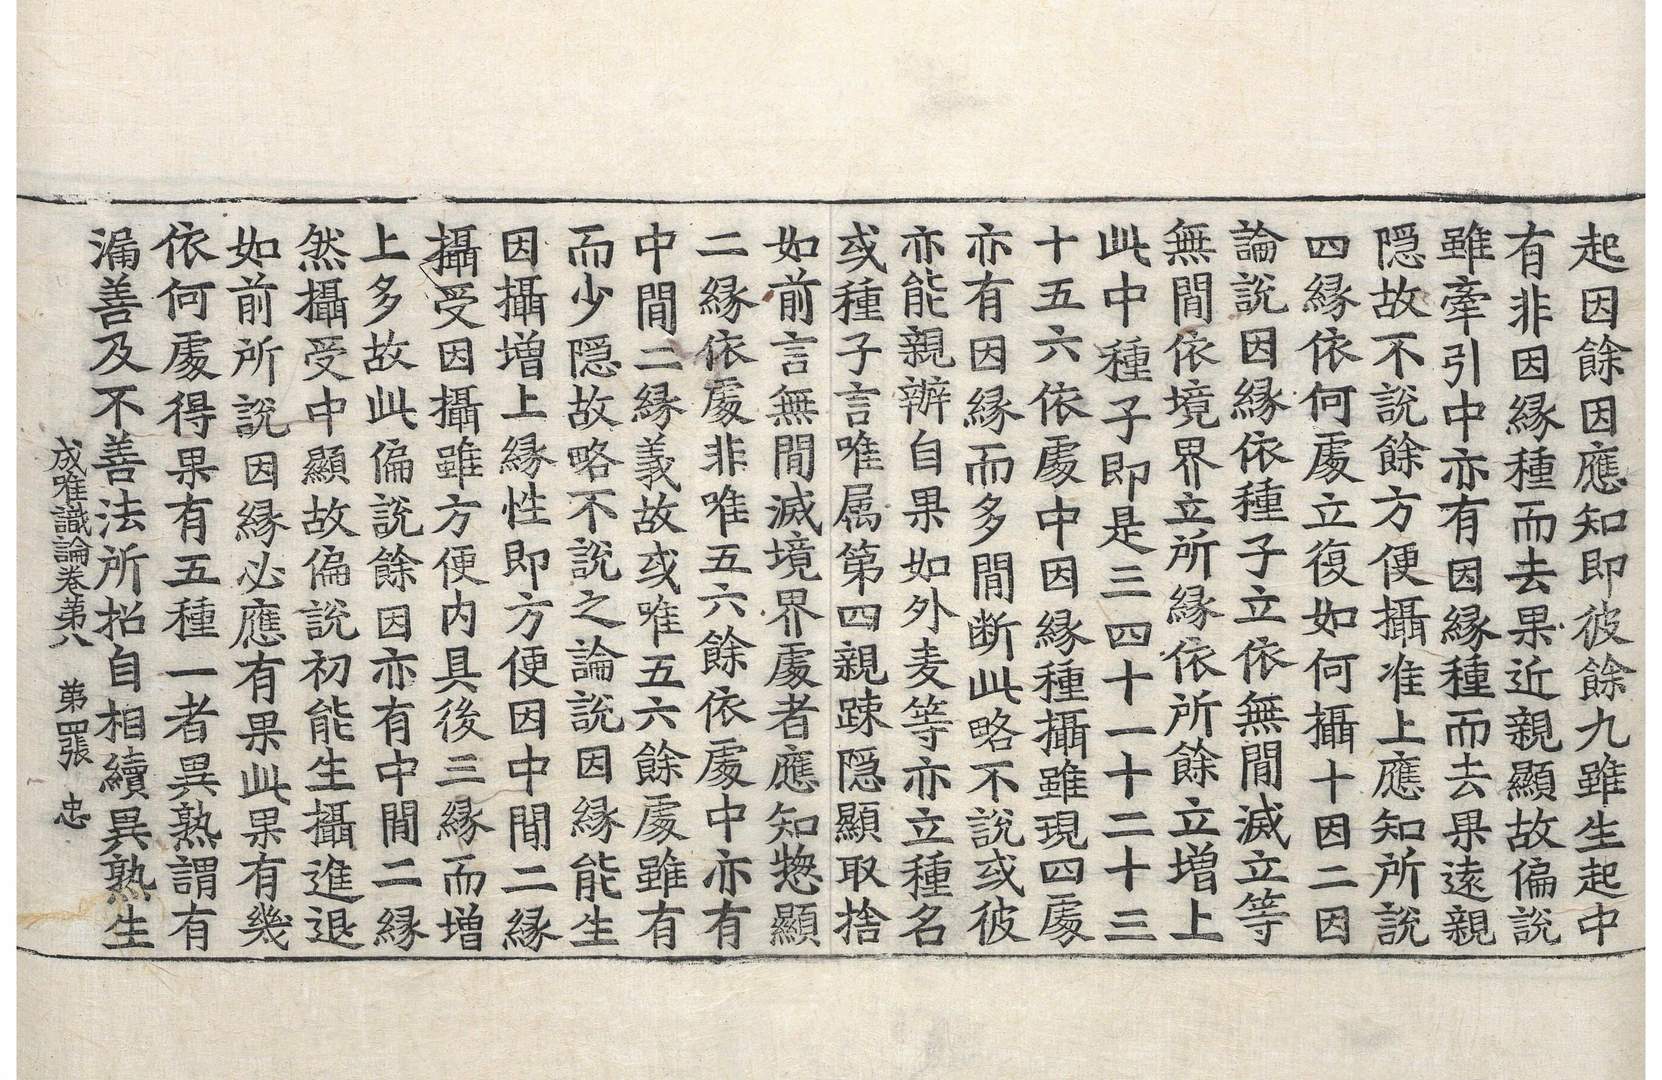 起因餘因應知即彼餘九雖生起中
有非因縁種而去果近親顯故偏說
雖牽引中亦有因縁種而去果遠親
隠故不說餘方便攝准上應知所說
四縁依何處立復如何攝十因二因
論說因縁依種子立依無間滅立等
無間依境界立所縁依所餘立增上
此中種子即是三四十一十二十三
十五六依處中因縁種攝雖現四處
亦有因縁而多間断此略不說或彼
亦能親辦自果如外麦等亦立種名
或種子言唯属第四親踈隠顯取捨
如前言無間滅境界處者應知惣顯
二縁依處非唯五六餘依處中亦有
中間二縁義故或唯五六餘處雖有
而少隠故略不說之論說因縁能生
因攝增上縁性即方便因中間二縁
攝受因攝雖方便内具後三縁而增
上多故此偏說餘因亦有中間二縁
然攝受中顯故偏說初能生攝進退
如前所說因縁必應有果此果有幾
依何處得果有五種一者異熟謂有
漏善及不善法所招自相續異熟生
成唯識論卷第八 第四張 忠